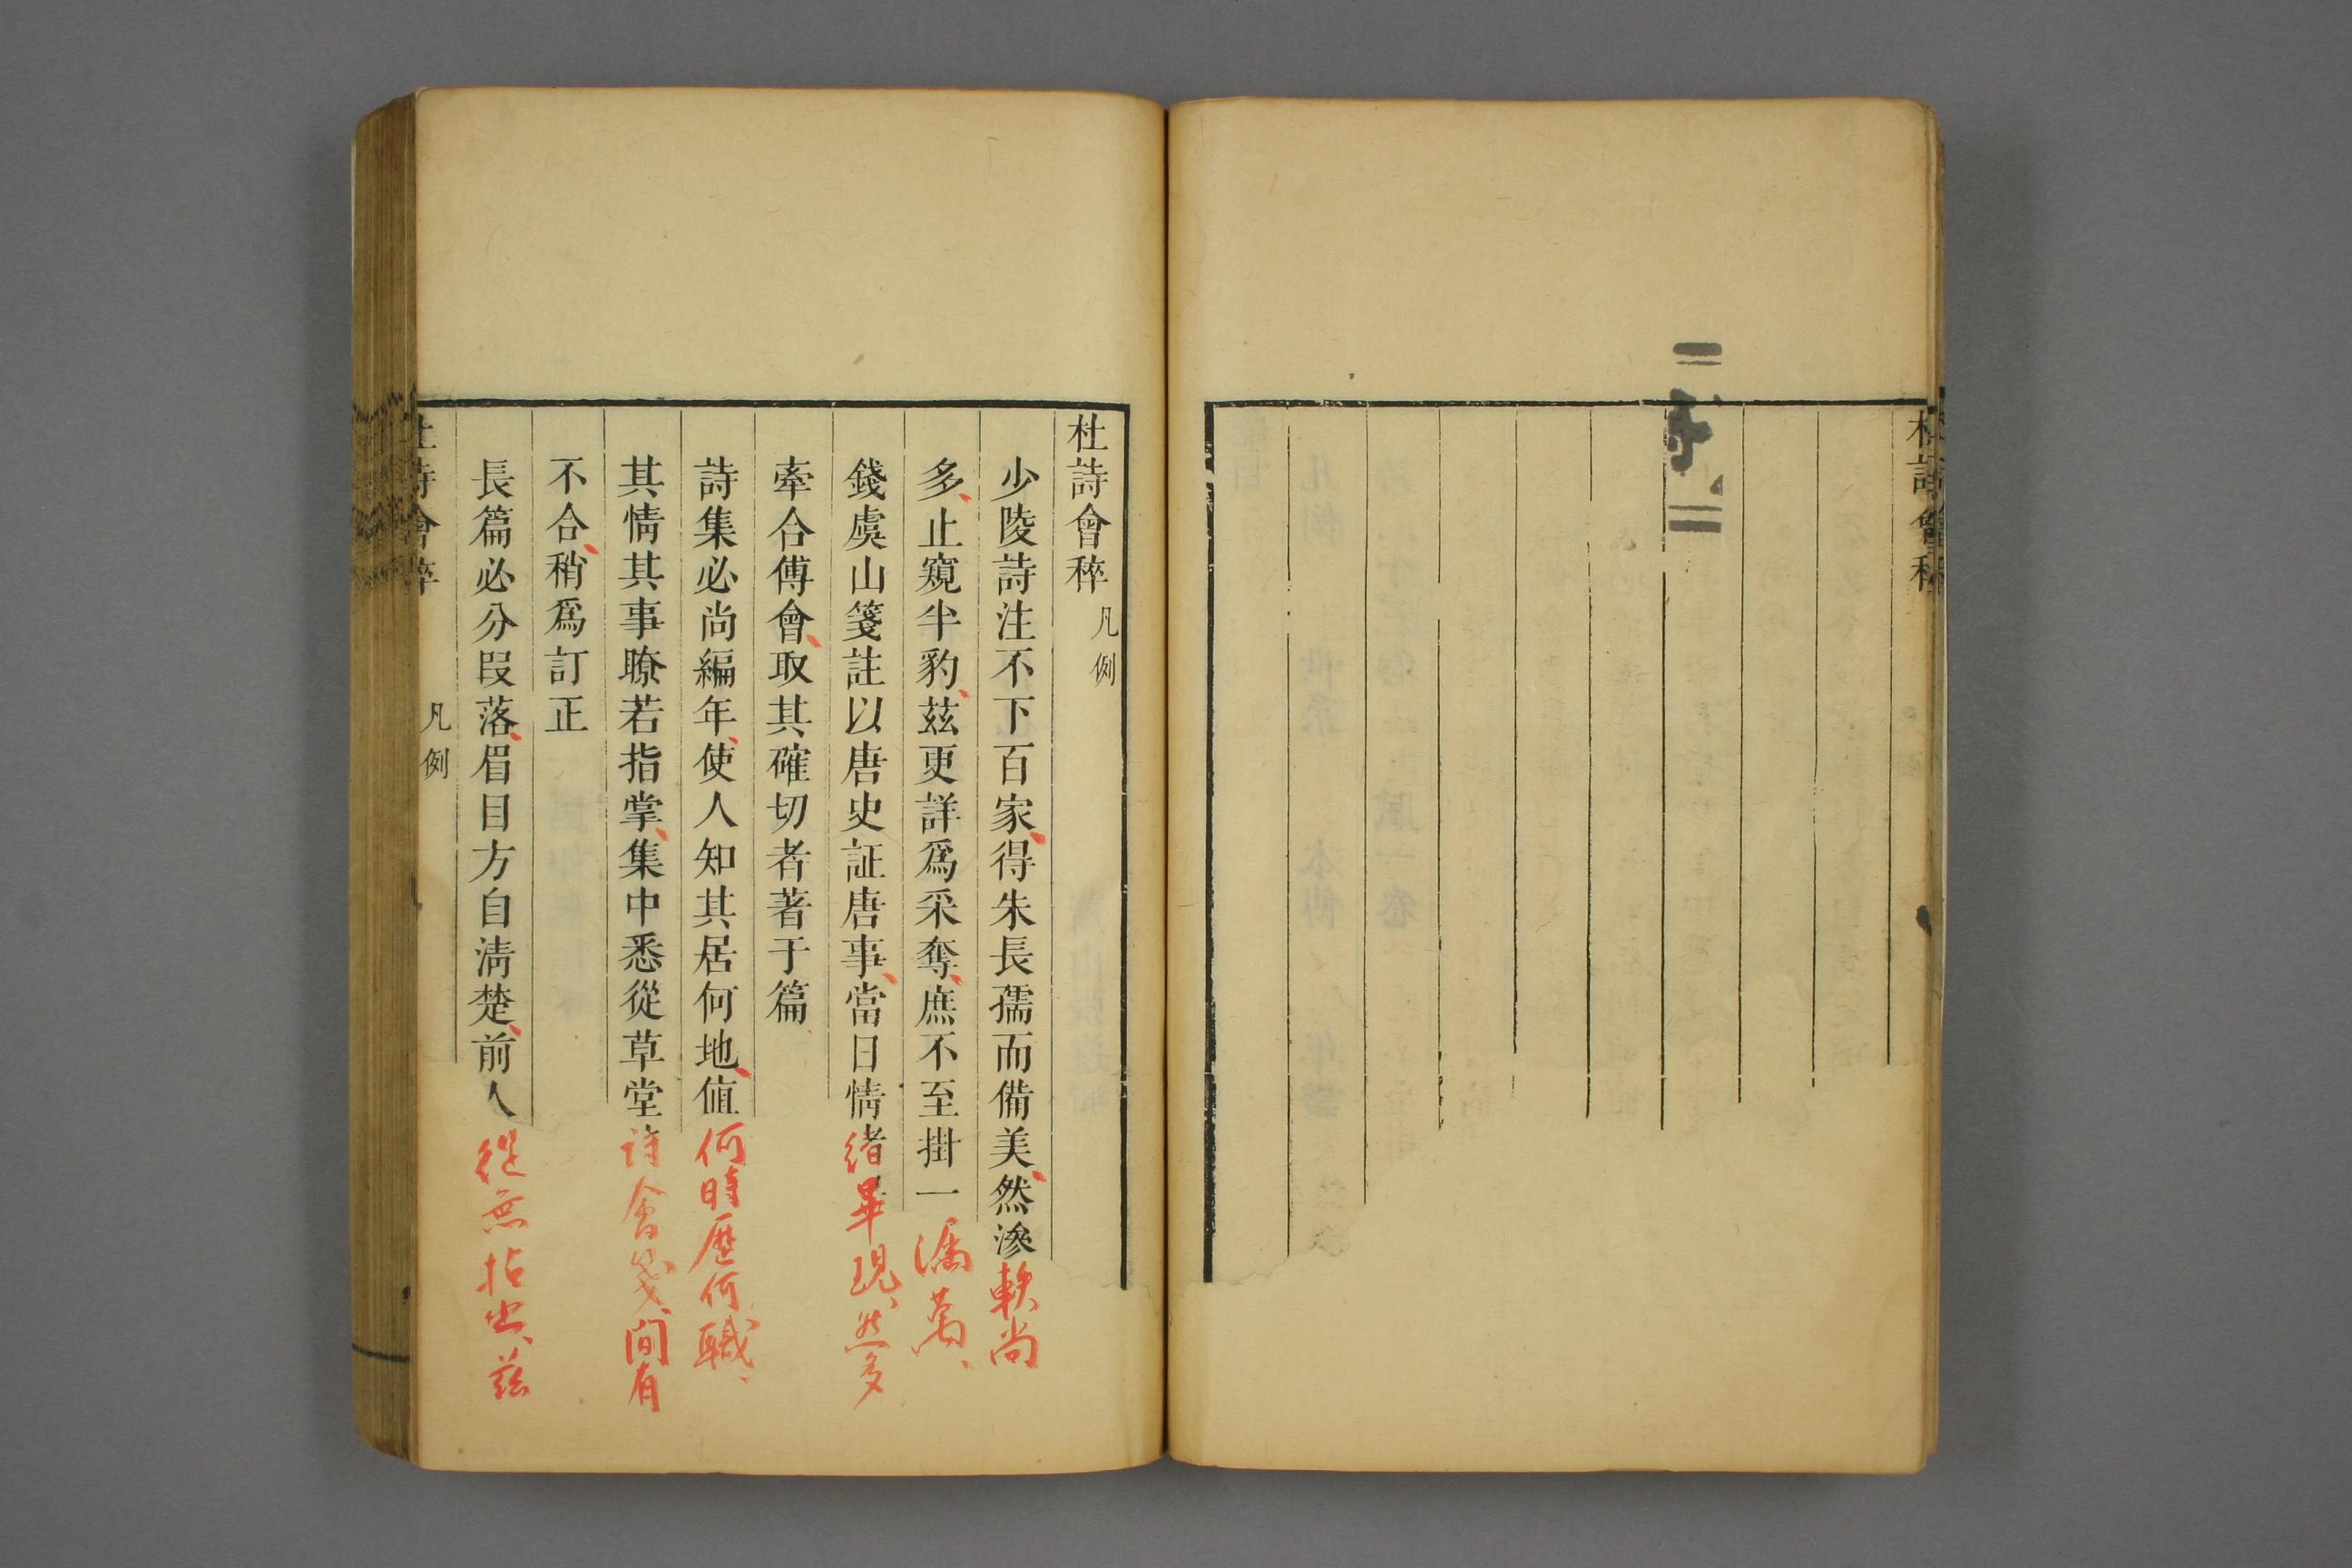 杜詩會稡
杜詩會稡 凡例
少陵詩注不下百家得朱長孺而備美然滲軼尚
多止窺半豹茲更詳爲采奪庶不至掛一漏萬
錢虞山箋註以唐史証唐事當日情緒畢現然多
牽合傅會取其確切者著于篇
詩集必尚編年使人知其居何地值何時歷何職
其情其事瞭若指掌集中悉從草堂詩會箋間有
不合稍爲訂正
長篇必分段落眉目方自清楚前人從無拈出茲
杜詩會稡 凡例